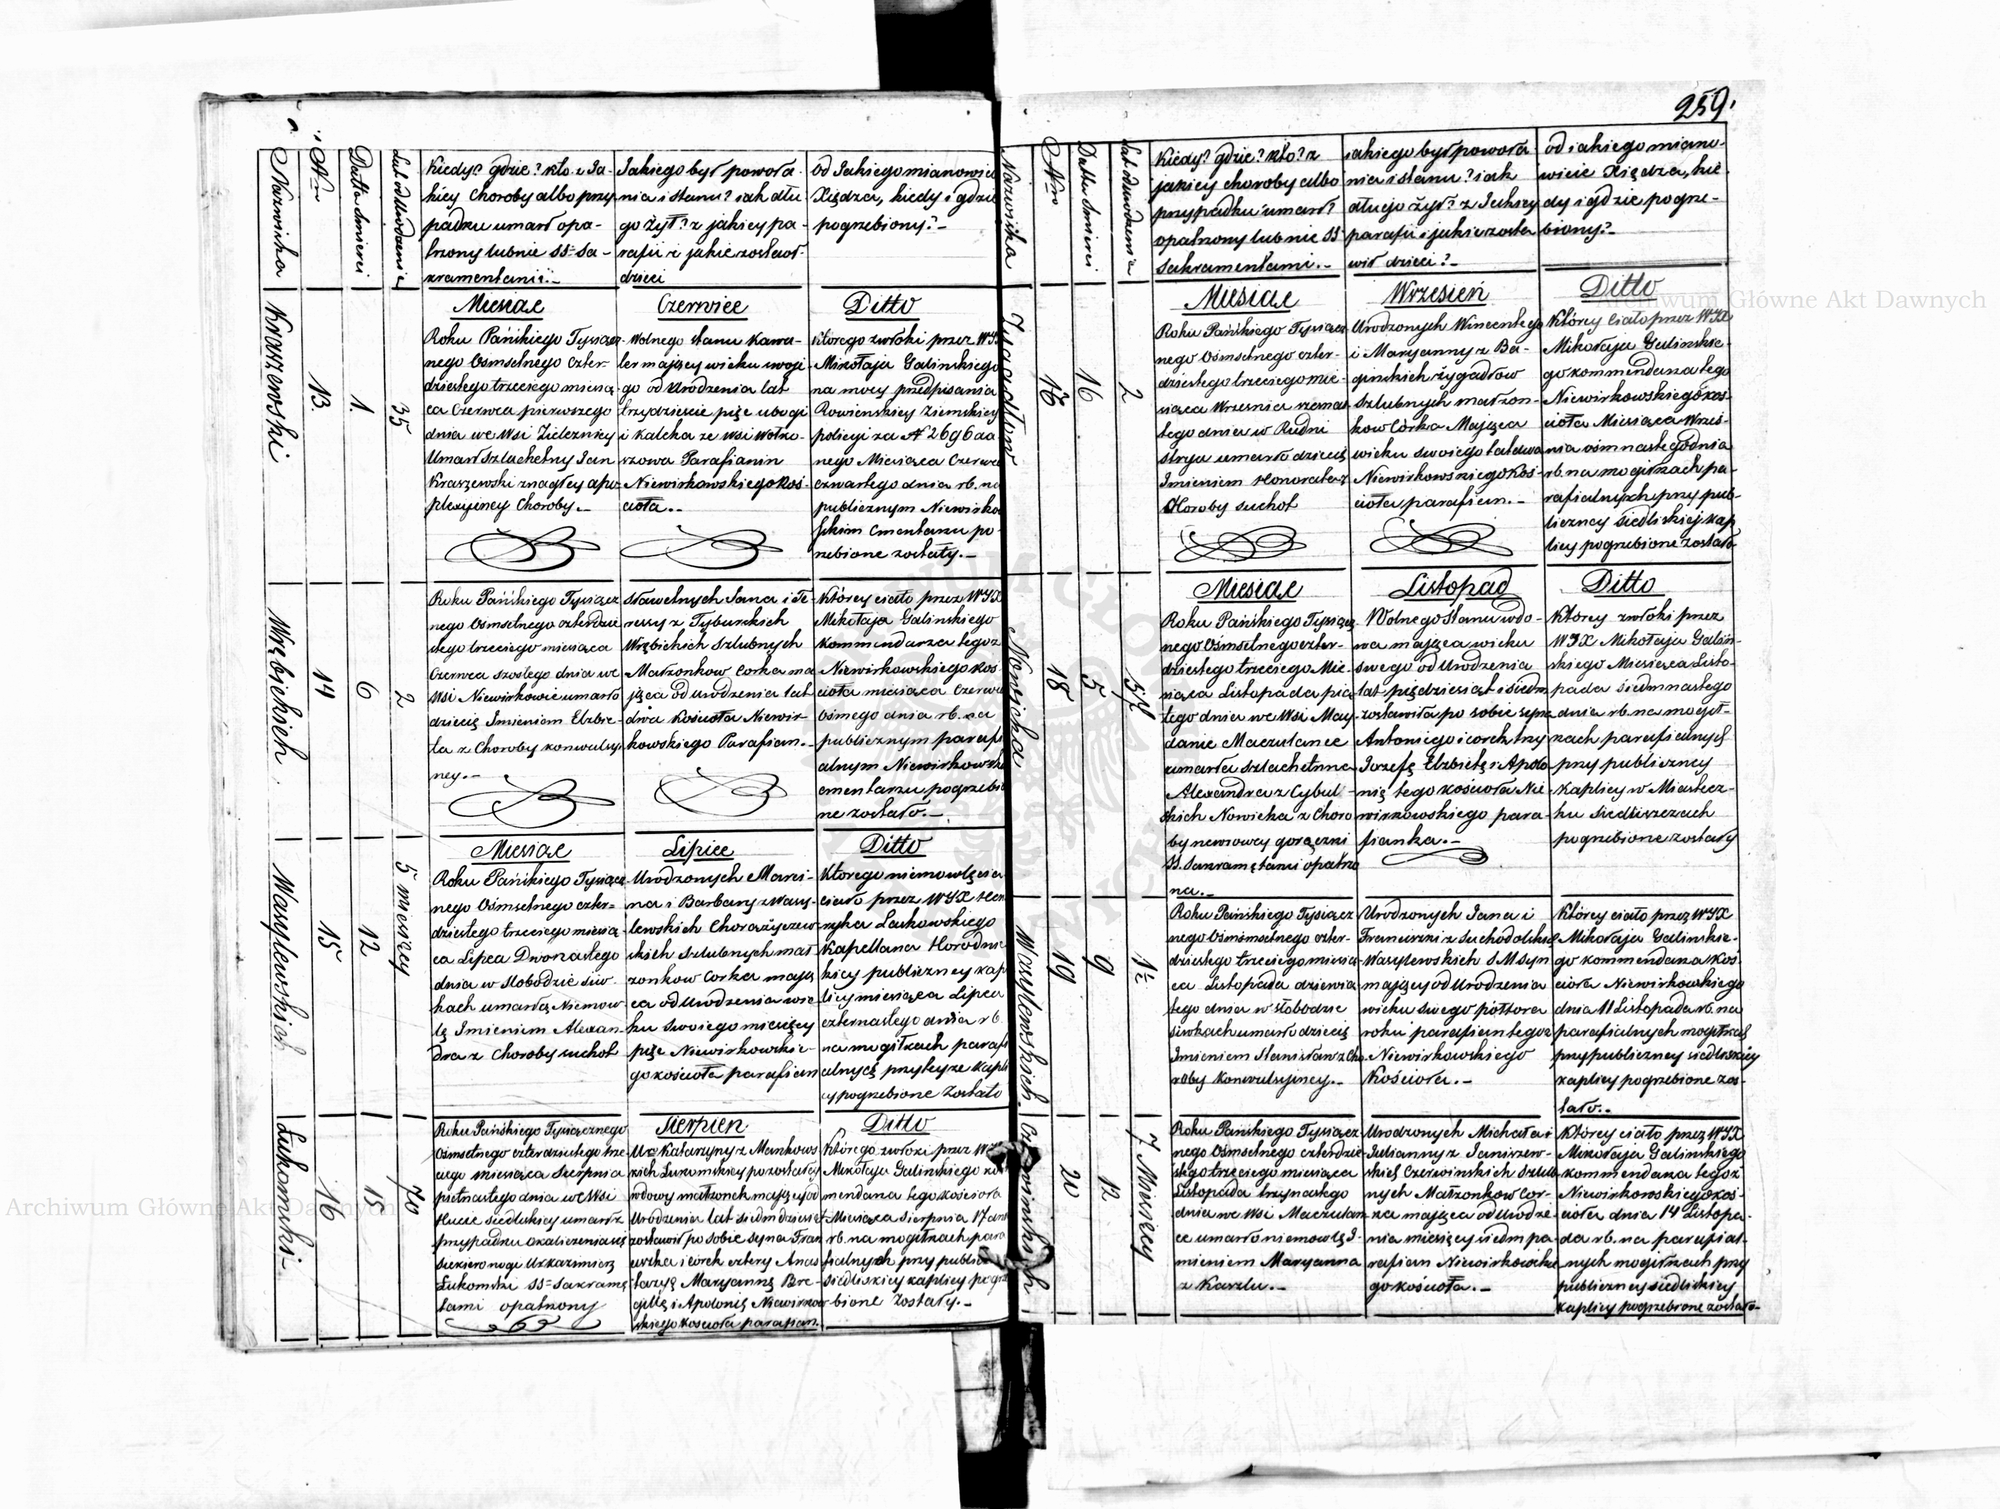 259.
Nazwiska
Nr
Datta Śmierci
Lat od Urodzenia
Kiedy? gdzie? kto? z Ja-
kiey Choroby albo przy
padku umarł opa-
trzony lub nie SS= Sa-
kramentami:-
Jakiego był powoła-
nia i stanu? iak dłu
go żył? z jakiey pa-
rafii i jakie zostawił
dzieci
od Jakiego mianowicie
Xiędza, kiedy i gdzie
pogrzebiony?-
Kraszewski
13.
1.
35
Miesiąc
Roku Pańskiego Tysiącz-
nego Osmsetnego Czter-
dziestego trzeciego miesią
ca Czerwca pierwszego
dnia we Wsi Zielezniey
Umarł Szlachetny Jan
Kraszewski z nagłey apo-
plexyjney Choroby.-
Czerwiec
Wolnego stanu Kawa-
ler mający wieku swoje-
go od Urodzenia lat
trzydzieście pięć ubogi
i kaleka ze wsi Wołko-
szowa Parafianin
Niewirkowskiego Koś-
cioła.-
Ditto
którego zwłoki przez WJX
Mikołaja Galinskiego
na mocy predpisania
Rowienskiey Ziemskiey
policyi za N 2696 da
nego Miesiąca Czerwca
czwartego dnia rb. na
publicznym Niewirko
skim Cmentarzu po-
rzebione zostały.-
Wrębickich
14
6
2
Roku Pańskiego Tysiącz
nego Osmsetnego czterdzie
stego trzeciego miesiąca
Czerwca szostego dnia we
Wsi Niewirkowie umarło
dziecię Imieniem Elzbie-
ta z Choroby konwulsyi
ney.-
Sławetnych Jana i Te
ressy z Tyburskich
Wrębickich Szlubnych
Matzonkow Corka ma
jąca od urodzenia lat
dwa Kościoła Niewir-
kowskiego Parafian.-
Którey ciało przez WJX
Mikołaja Galinskiego
Kommendarza tegoz
Niewirkowskiego Kos-
cioła miesiąca Czerwca
Osmego dnia rb. na
publicznym parafi
alnym Niewirkowski
cmentarzu pogrzebio
ne zostało.-
Wasylewskich
15
12
5 miesięcy
Miesiąc
Roku Pańskiego Tysiącz
nego Osmsetnego czter=
dziestego trzeciego miesią
ca Lipca Dwonastego
dnia w Słobodzie Siw-
kach umarła Niemow-
lę Imieniem Alexan-
dra z Choroby suchot
Lipiec
Urodzonych Marci-
na i Barbary z Wasy-
lewskich Chorążyczew-
skich Szlubnych mał-
zonkow Corka mają
ca od Urodzenia wie
ku swoiego miesięcy
pięć Niewirkowskie-
go kościoła parafian
Ditto
Którego niemowlęcia
ciało przez WJX Hen
ryka Laukowskiego
Kapellana Horodni
kiey publiczney kap
licy miesiąca Lipca
czternastego dnia rb
na mogiłkach parafi
alnych przy teyze kapli
cy pogrzebione Zostało
Łukomski.-
16
15
70
Roku Pańskiego Tysiącznego
Osmsetnego czterdziestego trze
ciego miesiąca Sierpnia
piętnastego dnia we Wsi
Hucie siedliskiey umarł z
przypadku okaliczenia się
siekierą nogi Ur Kazimierz
Łukomski SS= Sakramę
tami opatrzony
Sierpien
Ur Katarzyny z Mankows
kich Lukomskiey pozostałey
wdowy małzonek mający od
Urodzenia lat siedmdziesiąt
zostawił po sobie syna Fran
ciszka i córek cztery Anas
tazyę Maryannę Bry-
gittę i Apolonię Niewirkow
skiego kościoła parafian.
Ditto
Którego zwłoki przez WJX
Mikołaja Galinskiego kom
mendarza tego kościoła
Miesiąca Sierpnia 17 dnia
rb. na mogiłkach para
fialnych przy publicz
siedliskiey kaplicy pogrze
bione Zostały.-
Nazwiska
Nr
Datta Śmierci
Lat od urodzenia
Kiedy? gdzie? kto? z
jakiey choroby albo
przypadku umarł?
opatrzony lub nie SS
Sakramentami.-
iakiego był powoła-
nia i stanu? iak
długo żył? z Jakiey
parafii i jakie zosta
wił dzieci?-
od iakiego miano-
wicie Xiędza, kie
dy i gdzie pogrze-
biony?-
Zygadłow
16
2
Miesiąc
Roku Pańskiego Tysiącz
nego Osmsetnego czter-
dziestego trzeciego mie-
siąca Wrzesnia szesnas
tego dnia w Rudni
Stryia umarło dziecię
Imieniem Honorata z
Choroby suchot
Wrzesień
Urodzonych Wincentego
i Maryanny z Ba-
ginskich Żygadłow
Szlubnych małżon-
kow Córka Mająca
wieku swoiego lat dwa
Niewirkowskiego Koś-
cioła parafian.-
Ditto
Którey Ciało przez WJX
Mikołaja Galinskie-
go kommendarza tego
Niewirkowskiego Koś-
cioła Miesiąca Wrześ-
nia osmnastego dnia
rb. na mogiłkach pa-
rafialnych przy pub-
liczney Siedliskiey kap
licy pogrzebione zostało
Nowicka
18
5
57
Miesiąc
Roku Pańskiego Tysiącz
nego Osmsetnego czter-
dziestego trzeciego Mie-
siąca Listopada pią
tego dnia we Wsi May-
danie Maczulance
umarła szlachetna
Alexandra z Cybul-
skich Nowicka z Choro
by nerwowey gorączki
SS. Sakramętami opatrzo
na.-
Listopad
Wolnego stanu wdo-
wa mająca wieku
swego od Urodzenia
lat pięćdziesiąt i siedm
zostawiła po sobie syna
Antoniego i corek trzy
Jozefę Elzbietę i Apolo
nię tego kościoła Nie
wirkowskiego para-
fianka.-
Ditto
Którey zwłoki przez
WJX Mikołaja Galiń-
skiego Miesiąca Listo-
pada siedmnastego
dnia rb. na mogił-
kach parafialnych
przy publiczney
Kaplicy w Miastecz-
ku Siedliszczach
pogrzebione zostały
Wasylewskich
19
9
1½
Roku Pańskiego Tysiącz
nego Osmsetnego czter-
dziestego trzeciego miesią
ca Listopada dziewią
tego dnia w słobodzie
siwkach umarło dziecię
Imieniem Stanisław z Cho
roby Konwulsyjney.-
Urodzonych Jana i
Franciszki z Suchodolskich
Wasylewskich SM syn
mający od Urodzenia
wieku swego półtora
roku parafian tegoz
Niewirkowskiego
Kościoła.-
Którey ciało przez WJX
Mikołaja Galinskie-
go kommendarza Koś
cioła Niewirkowskiego
dnia 11 Listopada rb. na
parafialnych mogiłkach
przy publiczney siedliskiey
kaplicy pogrzebione zos-
tało.-
Czerwinskich
20
12
7 Miesięcy
Roku Pańskiego Tysiącz
nego Osmsetnego czterdzie
stego trzeciego miesiąca
Listopada trzynastego
dnia we Wsi Maczulan
ce umarło niemowlę I-
mieniem Maryanna
z Kaszlu.-
Urodzonych Michała i
Julianny z Janiszew-
skich Czerwinskich Szlub
nych Małzonkow Cor-
ka mająca od Urodze
nia miesięcy siedm pa
rafian Niewirkowskie
go kościoła.-
Którey ciało przez WJX
Mikołaja Galinskiego
kommendarza tegoz
Niewirkowskiego koś-
cioła dnia 14 Listopa-
da rb. na parafial-
nych mogiłkach przy
publiczney siedliskiey
kaplicy pogrzebione zostało.-
Archiwum Główne Akt Dawnych
Archiwum Główne Akt Dawnych